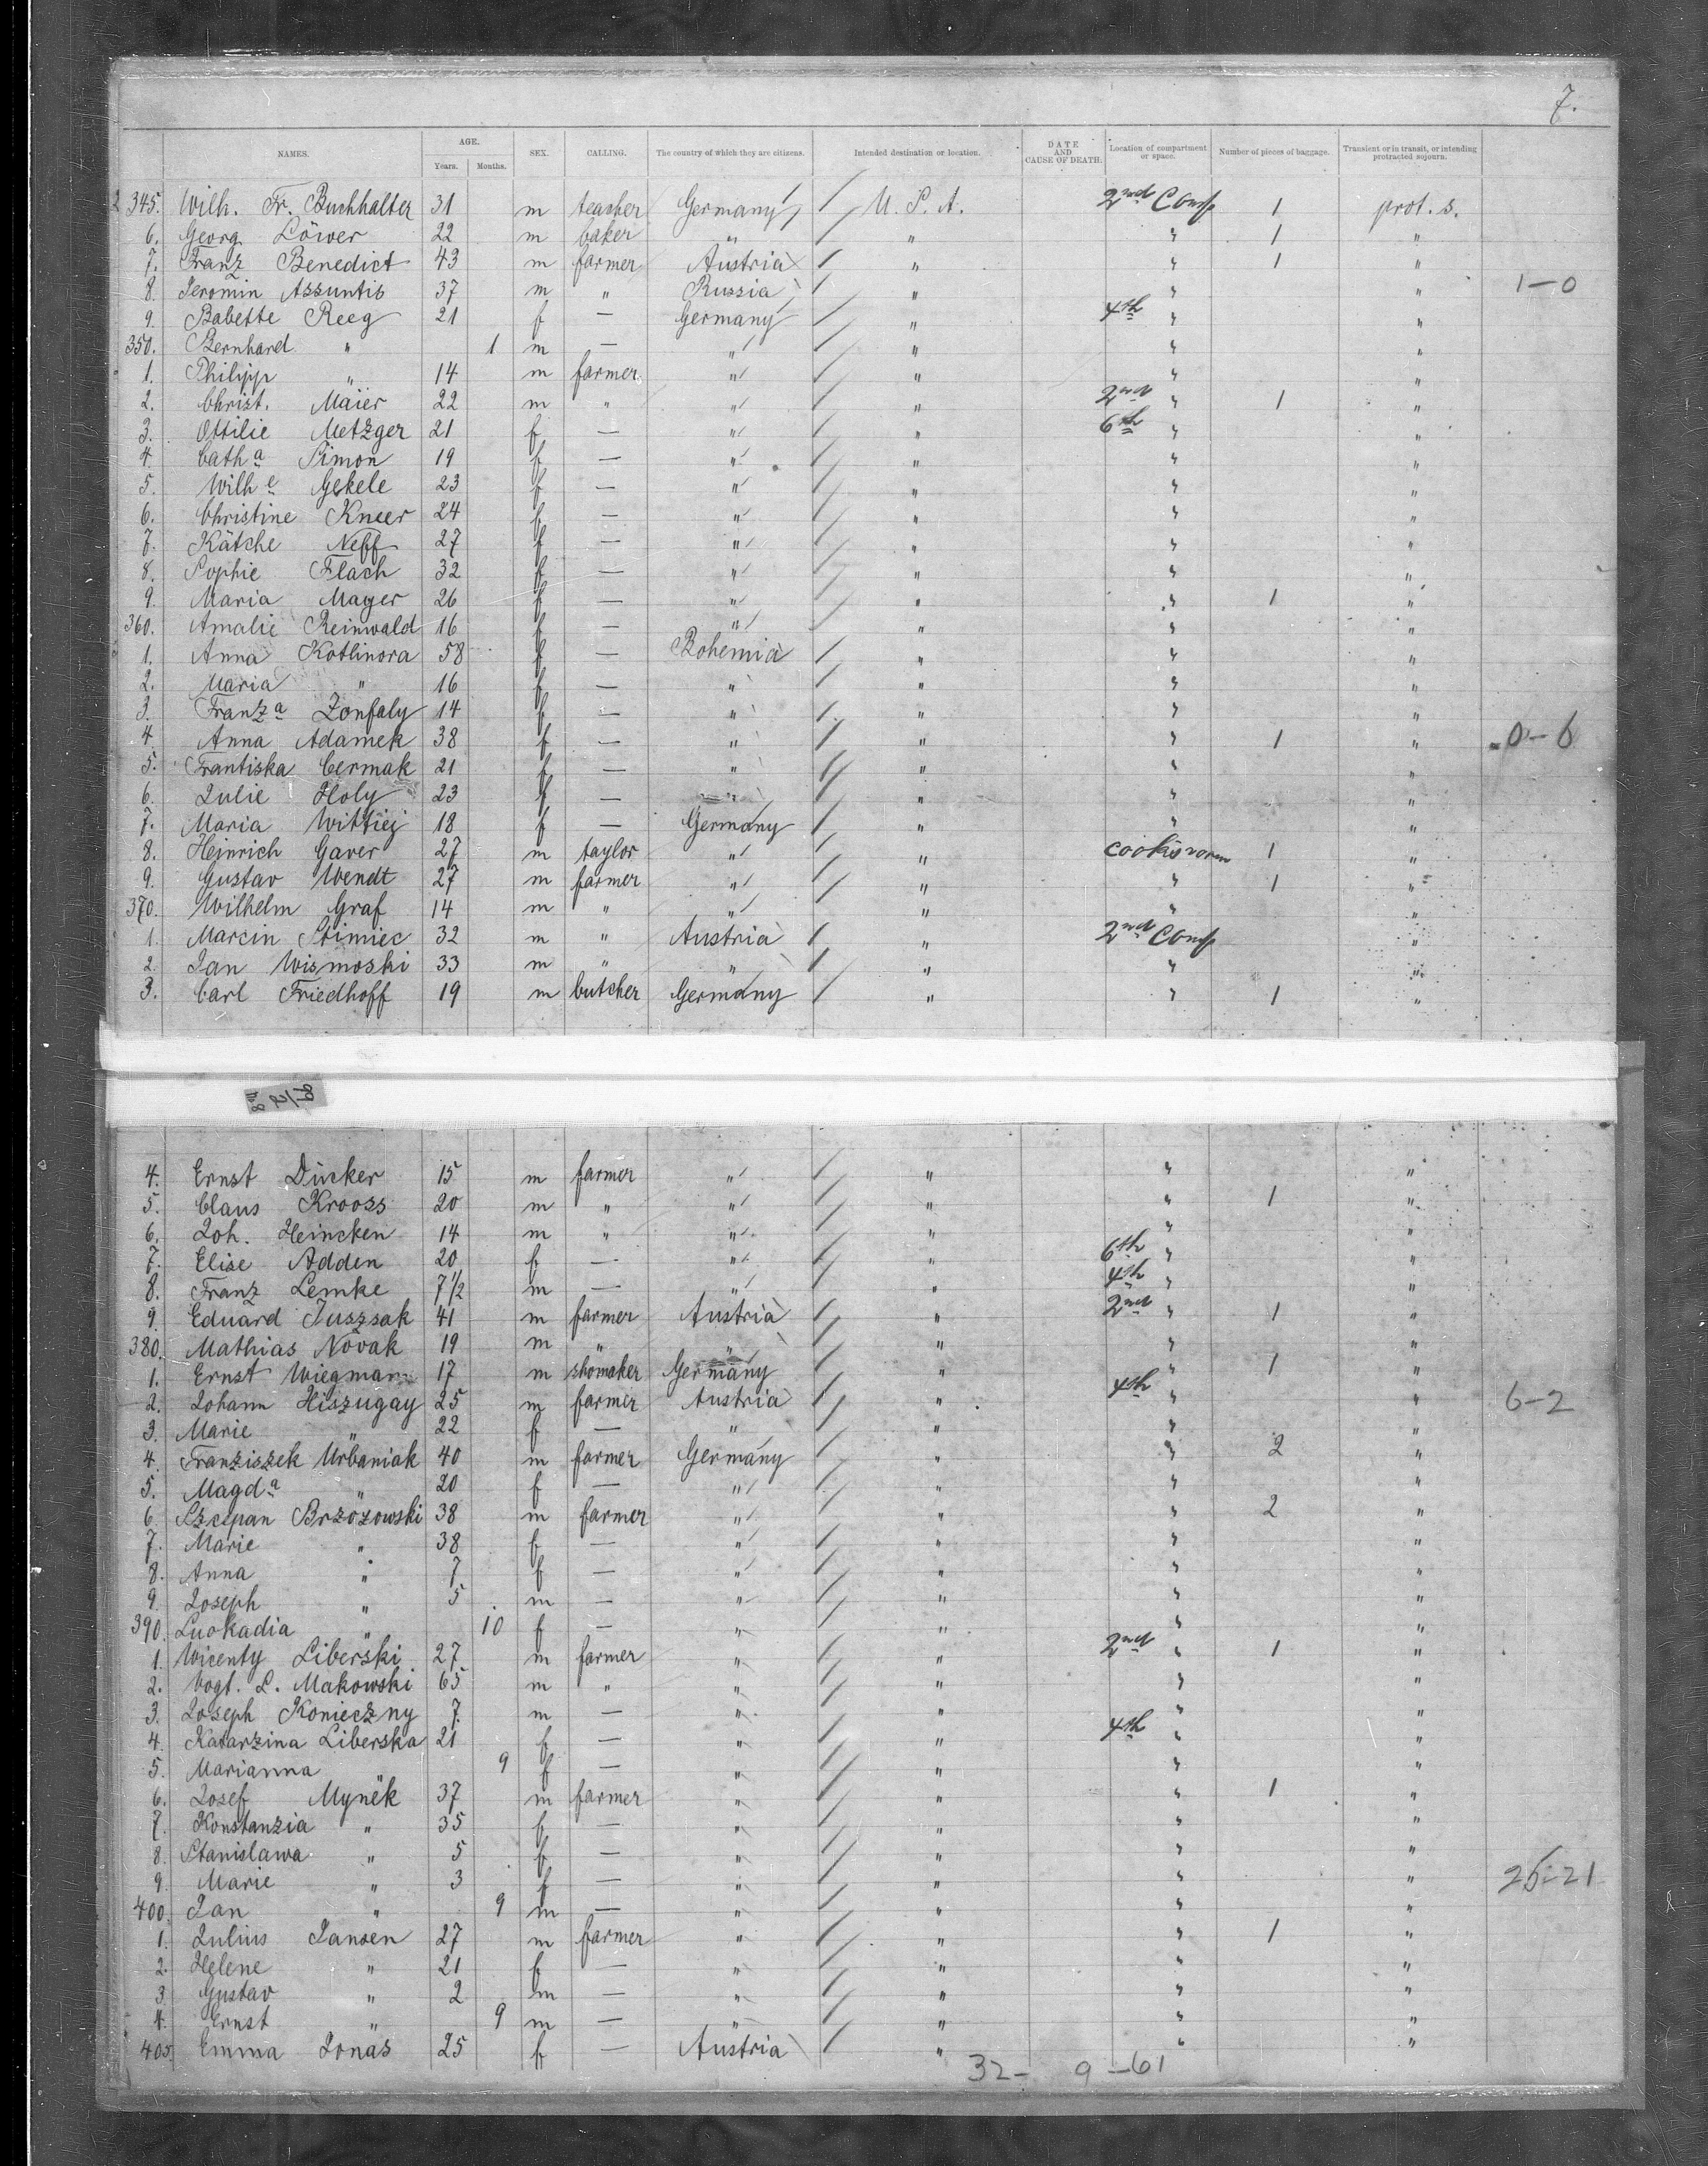 7.
NAMES. AGE. Years. Months. SEX. CALLING. The country of which they are citizens. Intended destination or location. DATE AND CAUSE OF DEATH. Location of compartment or space. Number of pieces of baggage. Transient or in transit, or intending protracted sojourn.
345. Wilh. Fr. Buchhalter 31 m teacher Germany / U. S. A. 2nd Comp 1 prot. s.
6. Georg Löwer 22 m baker " / " " 1 "
7. Franz Benedict 43 m farmer Austria / " " 1 "
8. Jeromin Assuntis 37 m " Russia / " " " 1-0
9. Babette Reeg 21 f — Germany / " 4th " "
350. Bernhard " 1 m — " / " " "
1. Philipp " 14 m farmer " / " " "
2. Christ. Maier 22 m " " / " 2nd " 1 "
3. Ottilie Metzger 21 f — " / " 6th " "
4. Catha Simon 19 f — " / " " "
5. Wilhe Gekele 23 f — " / " " "
6. Christine Kneer 24 f — " / " " "
7. Kätche Neff 27 f — " / " " "
8. Sophie Flach 32 f — " / " " "
9. Maria Mayer 26 f — " / " " 1 "
360. Amalie Reinwald 16 f — " / " " "
1. Anna Kotlinora 58 f — Bohemia / " " "
2. Maria " 16 f — " / " " "
3. Franza Zonfaly 14 f — " / " " "
4. Anna Adamek 38 f — " / " " 1 " 0-6
5. Frantiska Cermak 21 f — " / " " "
6. Julie Holy 23 f — " / " " "
7. Maria Wittiej 18 f — Germany / " " "
8. Heinrich Gaver 27 m taylor " / " cooksroom 1 "
9. Gustav Wendt 27 m farmer " / " " 1 "
370. Wilhelm Graf 14 m " " / " " "
1. Marcin Stimiec 32 m " Austria / " 2nd Comp "
2. Jan Wismoski 33 m " " / " " "
3. Carl Friedhoff 19 m butcher Germany / " " 1 "
4. Ernst Dücker 15 m farmer " / " " "
5. Claus Krooss 20 m " " / " " 1 "
6. Joh. Heincken 14 m " " / " " "
7. Elise Adden 20 f — " / " 6th " "
8. Franz Lemke 7½ m — " / " 4th " "
9. Eduard Juszsak 41 m farmer Austria / " 2nd " 1 "
380. Mathias Novak 19 m " " / " " "
1. Ernst Wiegmann 17 m shomaker Germany / " " 1 "
2. Johann Hiszugay 25 m farmer Austria / " 4th " " 6-2
3. Marie " 22 f — " / " " "
4. Franziszek Urbaniak 40 m farmer Germany / " " 2 "
5. Magda " 20 f — " / " " "
6. Szcepan Brzozowski 38 m farmer " / " " 2 "
7. Marie " 38 f — " / " " "
8. Anna " 7 f — " / " " "
9. Joseph " 5 m — " / " " "
390. Luokadia " 10 f — " / " " "
1. Wicenty Liberski 27 m farmer " / " 2nd " 1 "
2. Vogt. L. Makowski 65 m " " / " " "
3. Joseph Konieczny 7. m — " / " " "
4. Katarzina Liberska 21 f — " / " 4th " "
5. Marianna 9 f — " / " " "
6. Josef Mynek 37 m farmer " / " " 1 "
7. Konstanzia " 35 f — " / " " "
8. Stanislawa " 5 f — " / " " "
9. Marie " 3 f — " / " " " 25-21
400. Jan " 9 m — " / " " "
1. Julius Jansen 27 m farmer " / " " 1 "
2. Helene " 21 f — " / " " "
3. Gustav " 2 m — " / " " "
4. Ernst " 9 m — " / " " "
405. Emma Jonas 25 f — Austria / " " "
32- 9-61